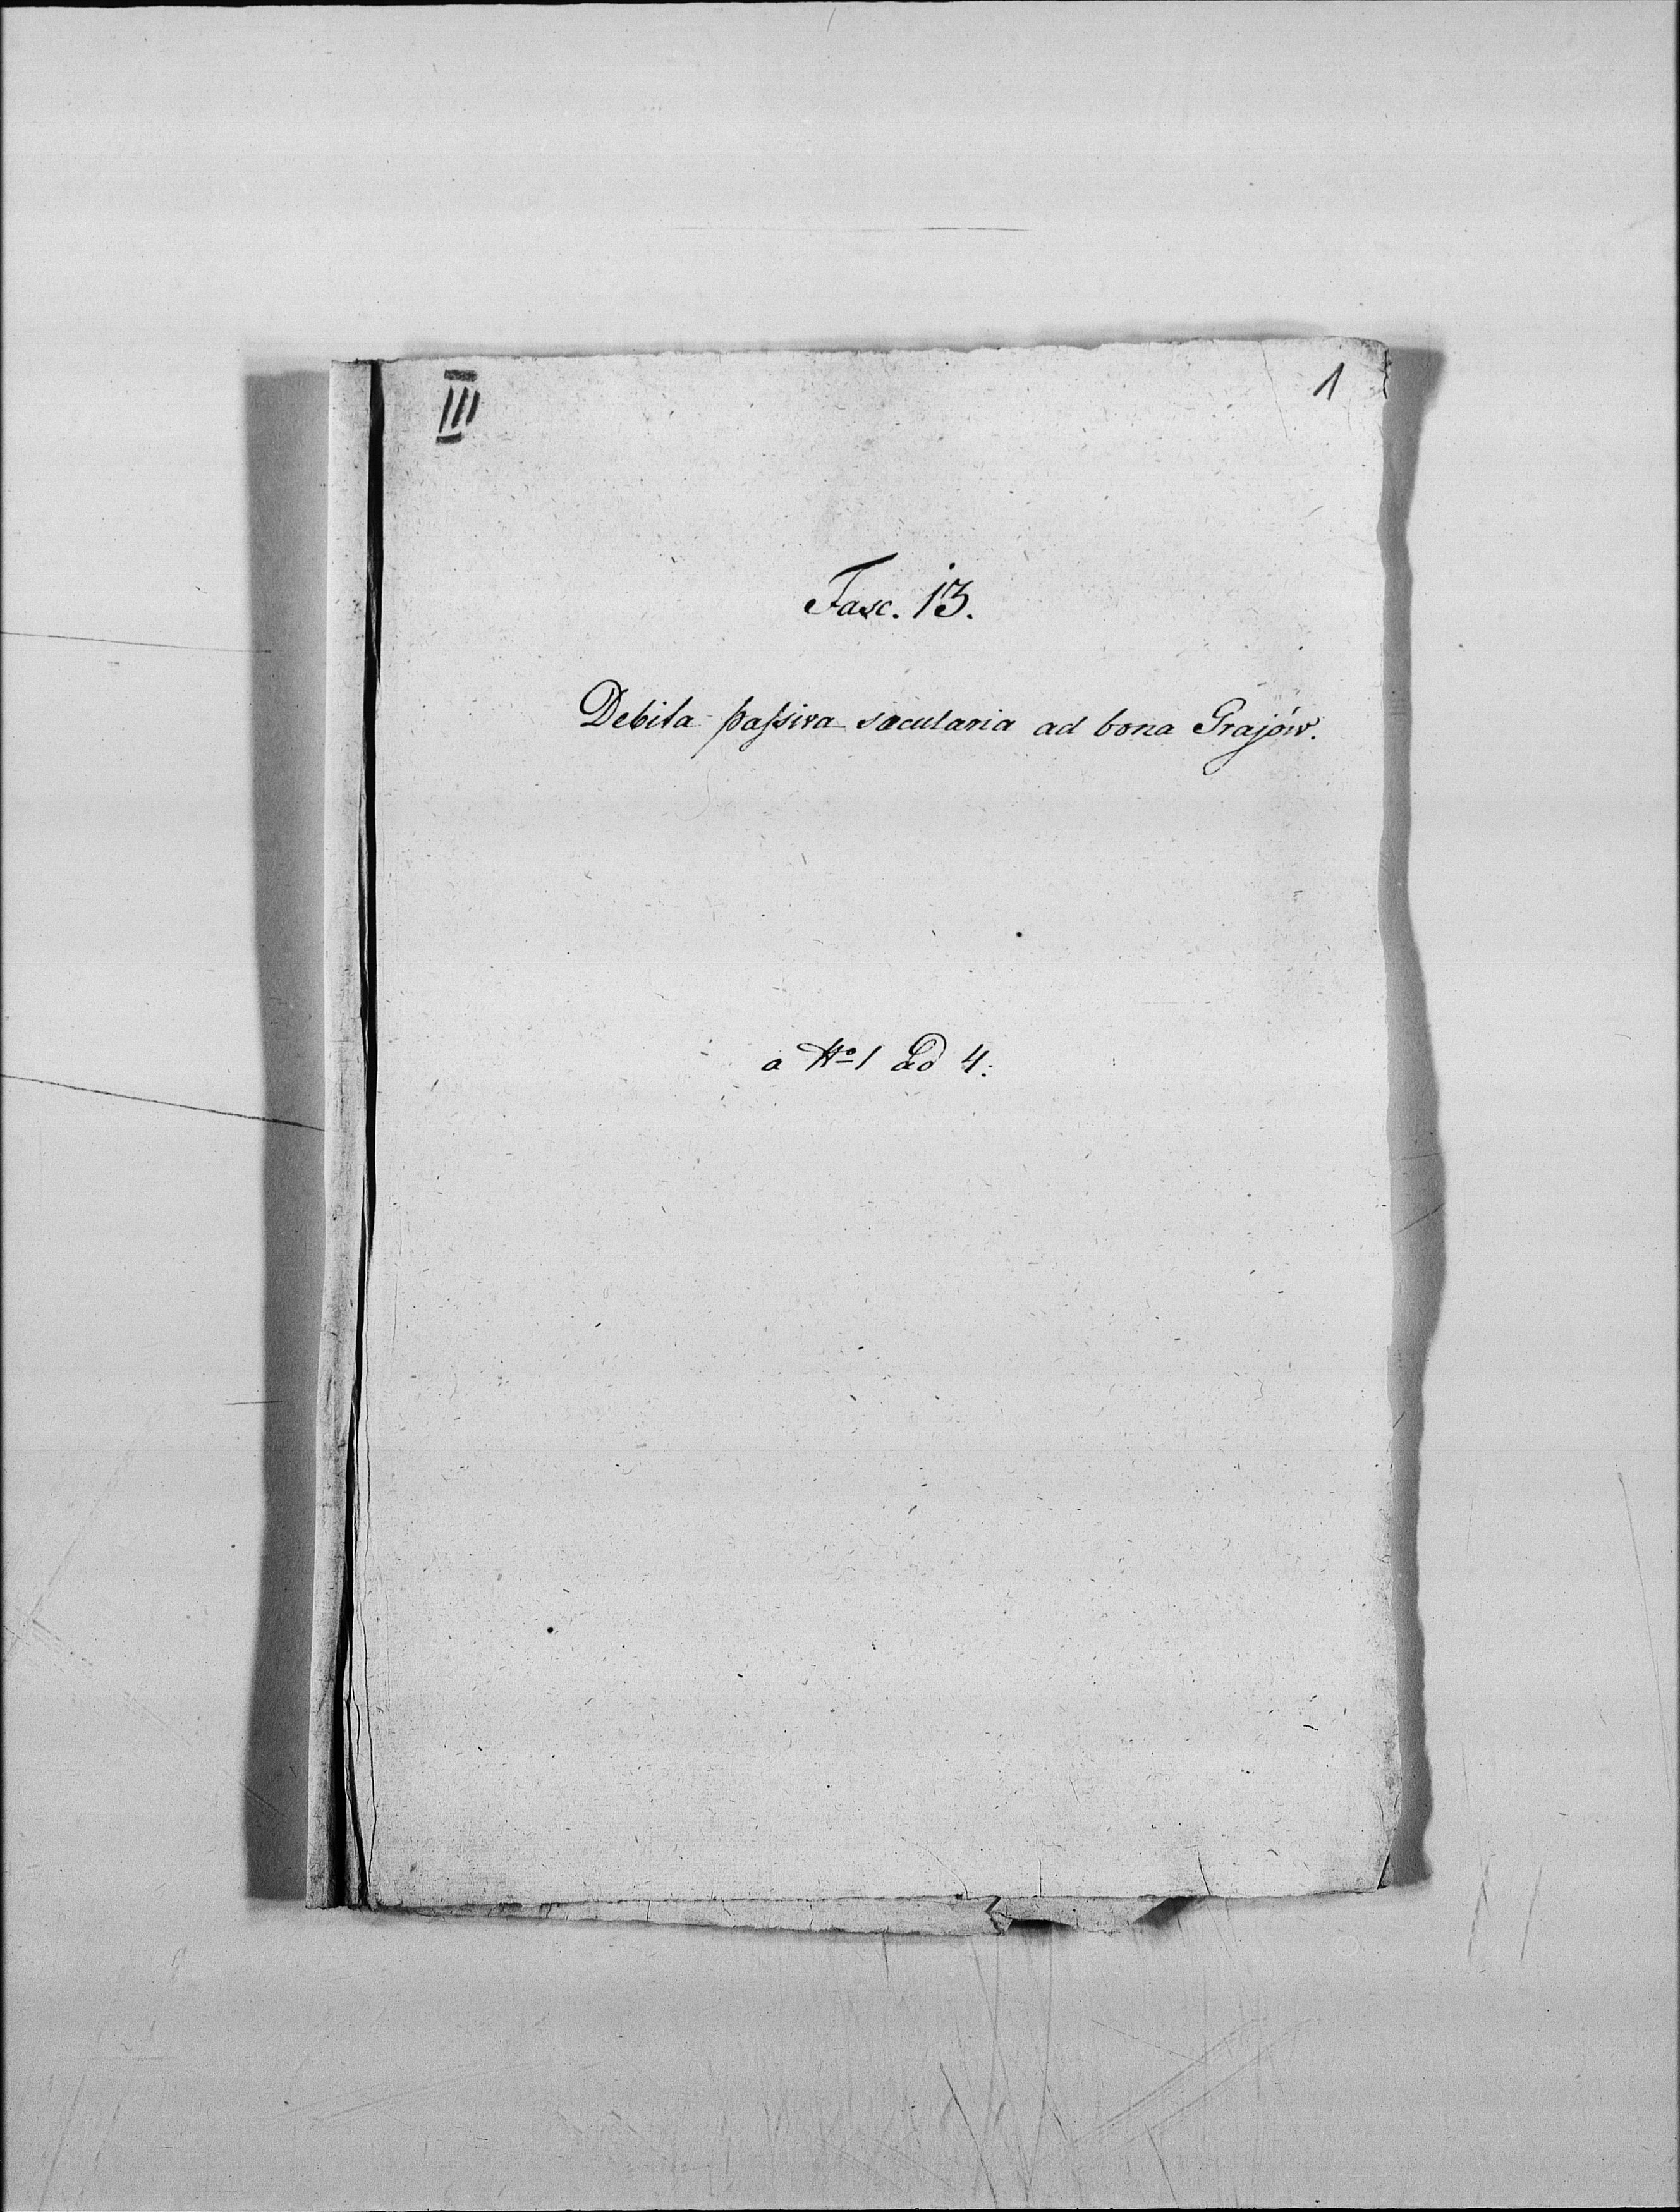 III
1
Fasc. 13.
Debita passiva sæcularia ad bona Grajów.
a No 1 ad 4.